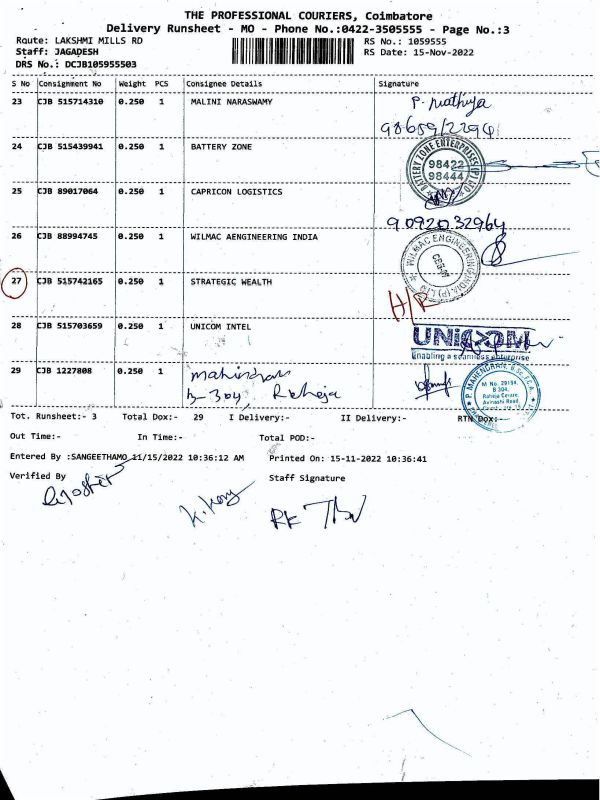 THE PROFESSIONAL COURIERS, Coimbatore
Delivery Runsheet - MO - Phone No.:0422-3505555 - Page No.:3
Route: LAKSHMI MILLS RD RS No.: 1059555
Staff: JAGADESH RS Date: 15-Nov-2022
DRS No.: DCJB105955503
S No Consignment No Weight PCS Consignee Details Signature
23 CJB 515714310 0.250 1 MALINI NARASWAMY
24 CJB 515439941 0.250 1 BATTERY ZONE
BATTERY ZONE ENTERPRISES (P) LTD
98422
98444
25 CJB 89017064 0.250 1 CAPRICON LOGISTICS
9.092032964
26 CJB 88994745 0.250 1 WILMAC AENGINEERING INDIA
WILMAC ENGINEERING INDIA (P) LTD
27 CJB 515742165 0.250 1 STRATEGIC WEALTH
H/R
28 CJB 515703659 0.250 1 UNICOM INTEL
UNICOM
Enabling a seamless enterprise
29 CJB 1227808 0.250 1
P. MAHENDRAN, B.Sc, F.C.A
M No. 29194
B 304,
Raheja Centre,
Avinashi Road
Tot. Runsheet:- 3 Total Dox:- 29 I Delivery:- II Delivery:- RTN Dox:-
Out Time:- In Time:- Total POD:-
Entered By :SANGEETHAMO 11/15/2022 10:36:12 AM Printed On: 15-11-2022 10:36:41
Verified By Staff Signature